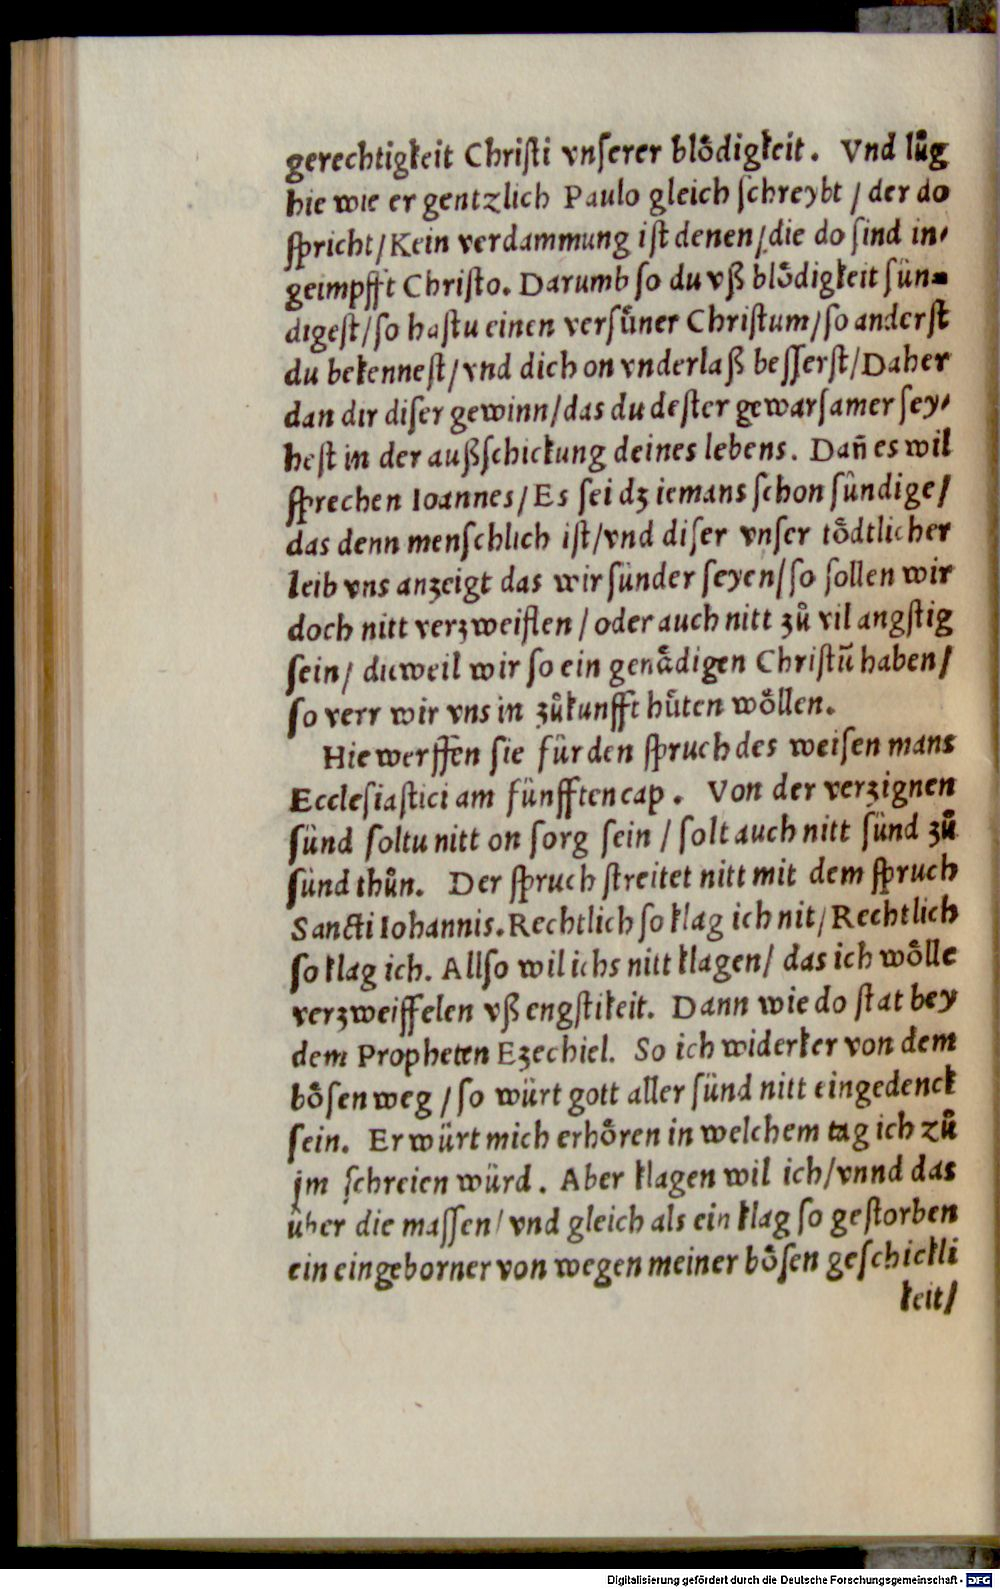 gerechtigkeit Chriſti vnſerer bloͤdigkeit. Vnd luͦg
hie wie er gentzlich Paulo gleich ſchreybt / der do
ſpricht/ Kein verdammung iſt denen/ die do ſind in⸗
geimpfft Chriſto. Darumb ſo du vß bloͤdigkeit ſün⸗
digeſt/ ſo haſtu einen verſuͤner Chriſtum/ ſo anderſt
du bekenneſt/ vnd dich on vnderlaß beſſerſt/ Daher
dan dir diſer gewinn/ das du deſter gewarſamer ſey⸗
heſt in der außſchickung deines lebens. Dañ es wil
ſprechen Ioannes/ Es ſei dʒ iemans ſchon ſündige/
das denn menſchlich iſt/ vnd diſer vnſer toͤdtlicher
leib vns anzeigt das wir ſünder ſeyen/ ſo ſollen wir
doch nitt verzweiflen / oder auch nitt zuͦ vil angſtig
ſein/ dieweil wir ſo ein genaͤdigen Chriſtū haben/
ſo verr wir vns in zuͦkunfft huͤten woͤllen.
Hie werffen ſie für den ſpruch des weiſen mans
Eccleſiaſtici am fünfften cap. Von der verzignen
ſünd ſoltu nitt on ſorg ſein / ſolt auch nitt ſünd zuͦ
ſünd thuͦn. Der ſpruch ſtreitet nitt mit dem ſpruch
Sancti Iohannis. Rechtlich ſo klag ich nit/ Rechtlich
ſo klag ich. Allſo wil ichs nitt klagen/ das ich woͤlle
verzweiffelen vß engſtikeit. Dann wie do ſtat bey
dem Propheten Ezechiel. So ich widerker von dem
boͤſen weg / ſo würt gott aller ſünd nitt eingedenck
ſein. Er würt mich erhoͤren in welchem tag ich zuͦ
jm ſchreien würd. Aber klagen wil ich/ vnnd das
über die maſſen/ vnd gleich als ein klag ſo geſtorben
ein eingeborner von wegen meiner boͤſen geſchickli
keit/
Digitalisierung gefördert durch die Deutsche Forschungsgemeinschaft - DFG